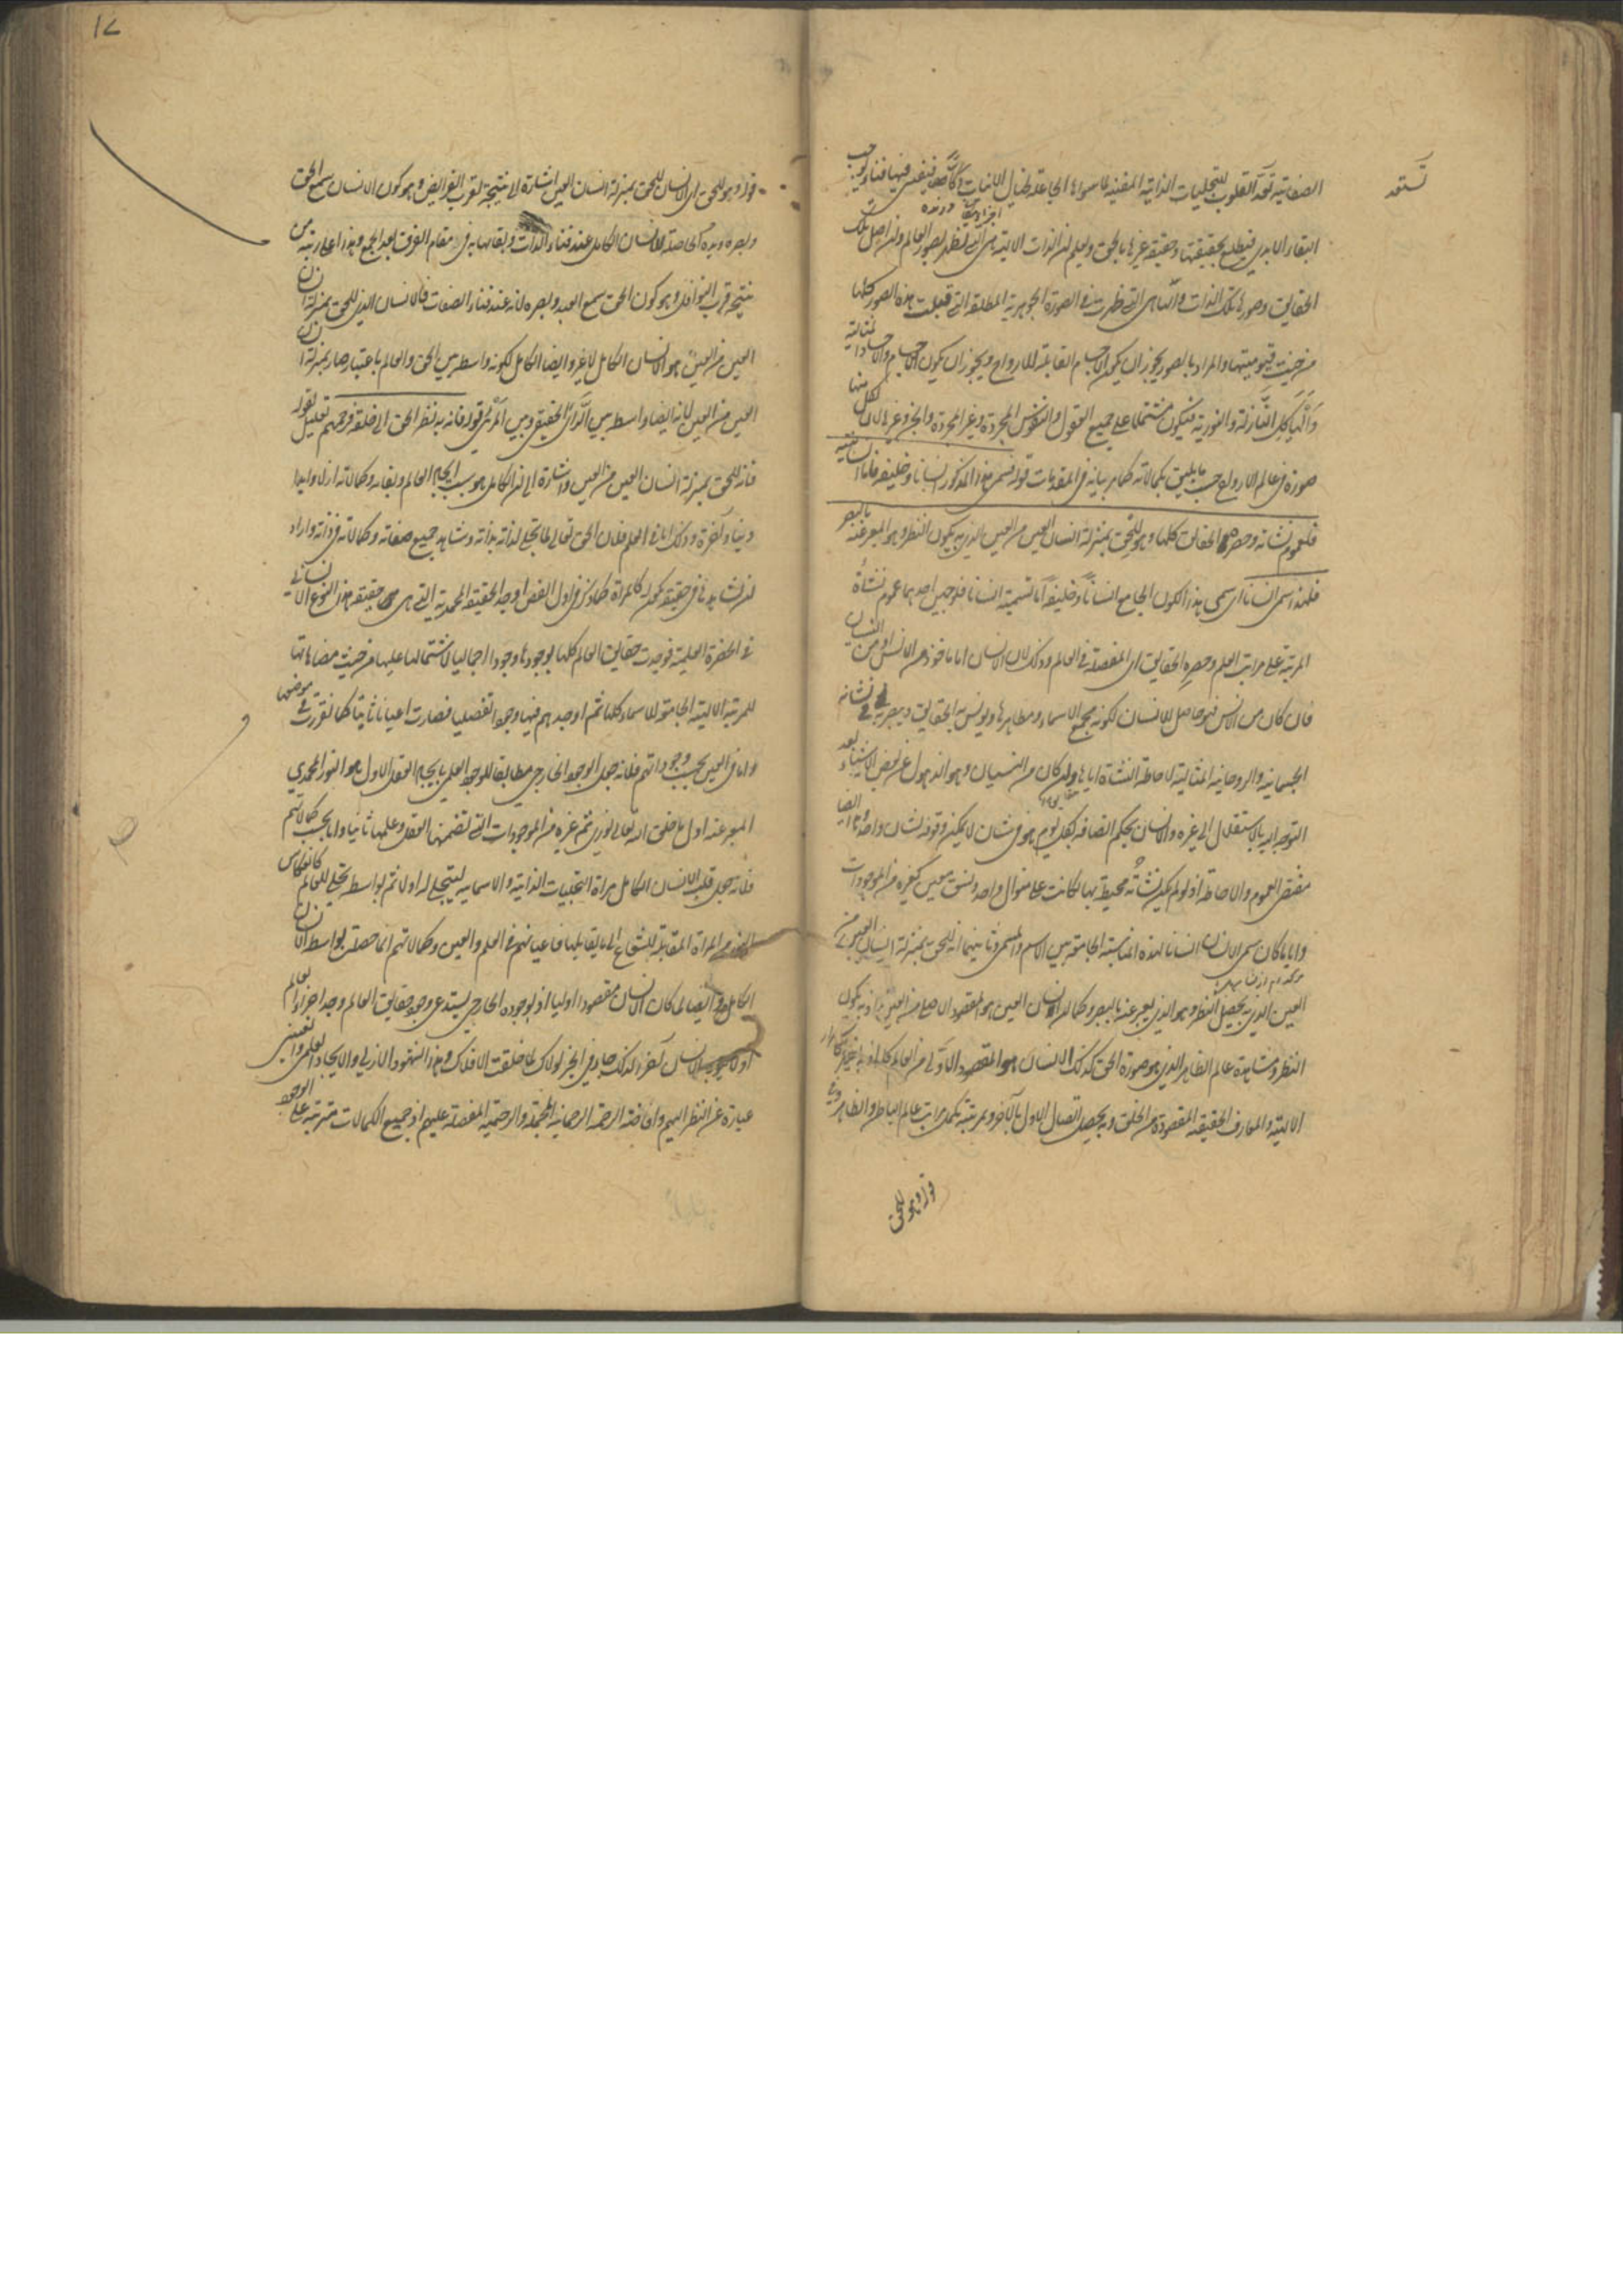 تستعد
الصفاتية تعد القلوب للتجليات الذاتية المفنية لما سواها الجاعلة لجبال الانيات دكا دكا فيفنى فيها فناء يوجب
البقاء الابدى فيطلع بحقيقتها وحقيقة غيرها بالحق ويعلم ان الذات الالهية هى التى تظهر بصور العالم وان اصل تلك
الحقايق وصورها تلك الذات وانها هى التى ظهرت فى الصورة الجوهرية المطلقة التى قبلت هذه الصور كلها
من حيث قيوميتها والمراد بالصور يجوز ان يكون الاجسام القابلة للارواح ويجوز ان يكون الاجسام والاجساد المثالية
والهياكل النازلة والنورية فيكون مشتملا على جميع العقول والنفوس المجردة وغير المجردة والجن وغيرها لان لكل منها
صورة فى عالم الارواح حسب ما يليق بكمالاته كما مر بيانه فى المقدمات قوله فسمى هذا المذكور انسانا وخليفة فاما انسانيته
فلعموم نشأته وحصره الحقايق كلها وهو للحق بمنزلة انسان العين من العين الذى به يكون النظر وهو المعبر عنه بالبصر
فلهذا سمى انسانا اى سمى هذا الكون الجامع انسانا وخليفة اما تسميته انسانا فلوجهين احدهما عموم نشأته
المرتبة على مراتب العالم وحصره الحقايق اى المفصلة فى العالم وذلك لان الانسان اما ماخوذ من الانس او من النسيان
فان كان من الانس فهو حاصل للانسان لكونه مجمع الاسماء ومظاهرها ويونس به الحقايق ويعبر به فى نشأته
الجسمانية والروحانية المثالية لاحاطة النشأة اياها وان كان من النسيان وهو الذهول عن بعض الاشياء بعد
التوجه اليه بالاشتغال الى غيره والانسان بحكم اتصافه بكل يوم هو فى شأن لا يمكن وقوفه لشأن واحد وايضا
مقتضى العموم والاحاطة اذ لو لم يكن نشأته محيطة بها لكانت على منوال واحد ونسق معين كغيره من الموجودات
وايا ما كان سمى الانسان انسانا لهذه المناسبة الجامعة بين الاسم والمسمى وثانيهما انه للحق بمنزلة انسان العين من
العين الذى به يحصل النظر وهو الذى يعبر عنه بالبصر وكما ان انسان العين هو المقصود الاصلى من العين اذ به يكون
النظر ومشاهدة عالم الظاهر الذى هو صورة الحق كذلك الانسان هو المقصود الاولى من العالم كله اذ به يظهر الاسرار
الالهية والمعارف الحقيقية المقصودة من الخلق وبه يحصل اتصال الاول بالاخر وبمرتبته تكمل مراتب عالم الباطن والظاهر
قوله وهو للحق
١٧
قوله وهو للحق اى الانسان للحق بمنزلة انسان العين اشارة الى نتيجة لقرب الفرايض وهو كون الانسان سمع الحق
وبصره ويده الحاصلة للانسان الكامل عند فناء الذات وبقائها به فى مقام الفرق بعد الجمع وهذا اعلى رتبة من
نتيجة قرب النوافل وهو كون الحق سمع العبد وبصره لانه عند فناء الصفات فالانسان الذى للحق بمنزلة انسان
العين من العين هو الانسان الكامل لا غير وايضا الكامل لكونه واسطة بين الحق والعالم باعتبار صار بمنزلة انسان
العين من العين لانه ايضا واسطة بين الرائى الحقيقى وبين المرئى قوله فانه به نظر الحق الى خلقه فرحمهم تعليل لقوله
فانه للحق بمنزلة انسان العين من العين واشارة الى ان الكامل هو سبب ايجاد العالم وبقائه وكمالاته ازلا وابدا
دنيا وآخرة وذلك اما فى العلم فلان الحق تعالى لما تجلى لذاته بذاته وشاهد جميع صفاته وكمالاته فى ذاته واراد
ان يشاهدها فى حقيقة تكون له كالمرآة كما ذكر فى اول الفص اوجد الحقيقة المحمدية التى هى حقيقة هذا النوع الانسانى
فى الحضرة العلمية فوجدت حقايق العالم كلها بوجودها وجودا اجماليا لاشتمالها عليها من حيث مضاهاتها
للمرتبة الالهية الجامعة للاسماء كلها ثم اوجدهم فيها وجودا تفصيليا فصارت اعيانا ثابتة كما تقررت فى موضعها
واما فى العين بحسب وجوداتهم فلانه جعل الوجود الخارجى مطابقا للوجود العلمى بايجاد العقل الاول هو النور المحمدى
المعبر عنه اول ما خلق الله تعالى نورى ثم غيره من الموجودات التى تضمنها العقل وعلمها ثانيا واما بحسب كمالاتهم
فلانه جعل قلب الانسان الكامل مرآة التجليات الذاتية والاسمائية ليتجلى له اولا ثم بواسطته تجلى للعالم كانعكاس
النور من المرآة المقابلة للشعاع الى ما يقابلها فاعيانهم فى العلم والعين وكمالاتهم انما حصلت بواسطة الانسان
الكامل وايضا لما كان الانسان مقصودا اوليا اذ بوجوده الخارجى يستدعى وجود حقايق العالم وجد اجزاء العالم
اولا ليوجد الانسان آخرا لذلك جاء فى الخبر لولاك لما خلقت الافلاك وهذا الشهود الازلى والايجاد العلمى والعينى
عبارة عن النظر اليهم وافاضة الرحمة الرحمانية المجملة والرحيمية المفصلة عليهم اذ جميع الكمالات مترتبة على الوجود